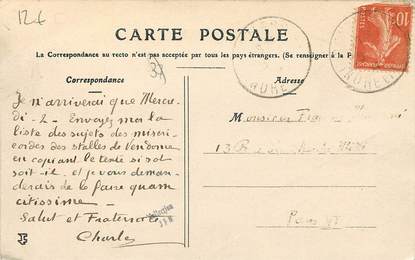 12€
CARTE POSTALE
La Correspondance au recto n'est pas acceptée par tous les pays étrangers. (Se renseigner à la P
37
Correspondance
Adresse
Je n'arriverai que Mercre-
di - 2 - Envoyez moi la
liste des sujets des miséri-
cordes des stalles de Vendome
en copiant le texte si
soit-il. et je vous deman-
derais de la faire quam
citissime -
Salut et Fraternité
Charles
Monsieur
13 Rue
Paris
Collection
10
POSTES